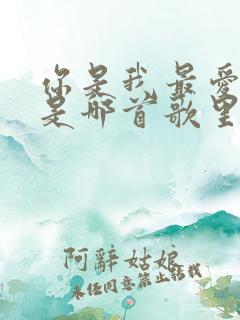 你是我最爱
是那首歌里
阿辞姑娘
未经同意禁止转载